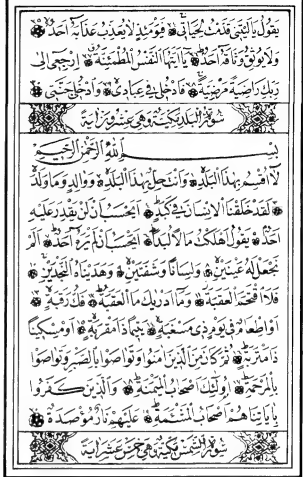 يَقُولُ يَالَيْتَنِي قَدَّمْتُ لِحَيَاتِي فَيَوْمَئِذٍ لَا يُعَذِّبُ عَذَابَهُ أَحَدٌ
وَلَا يُوثِقُ وَثَاقَهُ أَحَدٌ يَا أَيَّتُهَا النَّفْسُ الْمُطْمَئِنَّةُ ارْجِعِي إِلَى
رَبِّكِ رَاضِيَةً مَرْضِيَّةً فَادْخُلِي فِي عِبَادِي وَادْخُلِي جَنَّتِي
سورة البلد مكية وهي عشرون آية
بِسْمِ اللَّهِ الرَّحْمَنِ الرَّحِيمِ
لَا أُقْسِمُ بِهَذَا الْبَلَدِ وَأَنْتَ حِلٌّ بِهَذَا الْبَلَدِ وَوَالِدٍ وَمَا وَلَدَ
لَقَدْ خَلَقْنَا الْإِنْسَانَ فِي كَبَدٍ أَيَحْسَبُ أَنْ لَنْ يَقْدِرَ عَلَيْهِ
أَحَدٌ يَقُولُ أَهْلَكْتُ مَالًا لُبَدًا أَيَحْسَبُ أَنْ لَمْ يَرَهُ أَحَدٌ أَلَمْ
نَجْعَلْ لَهُ عَيْنَيْنِ وَلِسَانًا وَشَفَتَيْنِ وَهَدَيْنَاهُ النَّجْدَيْنِ
فَلَا اقْتَحَمَ الْعَقَبَةَ وَمَا أَدْرَاكَ مَا الْعَقَبَةُ فَكُّ رَقَبَةٍ
أَوْ إِطْعَامٌ فِي يَوْمٍ ذِي مَسْغَبَةٍ يَتِيمًا ذَا مَقْرَبَةٍ أَوْ مِسْكِينًا
ذَا مَتْرَبَةٍ ثُمَّ كَانَ مِنَ الَّذِينَ آمَنُوا وَتَوَاصَوْا بِالصَّبْرِ وَتَوَاصَوْا
بِالْمَرْحَمَةِ أُولَئِكَ أَصْحَابُ الْمَيْمَنَةِ وَالَّذِينَ كَفَرُوا
بِآيَاتِنَا هُمْ أَصْحَابُ الْمَشْئَمَةِ عَلَيْهِمْ نَارٌ مُؤْصَدَةٌ
سورة الشمس مكية وهي خمس عشر آية